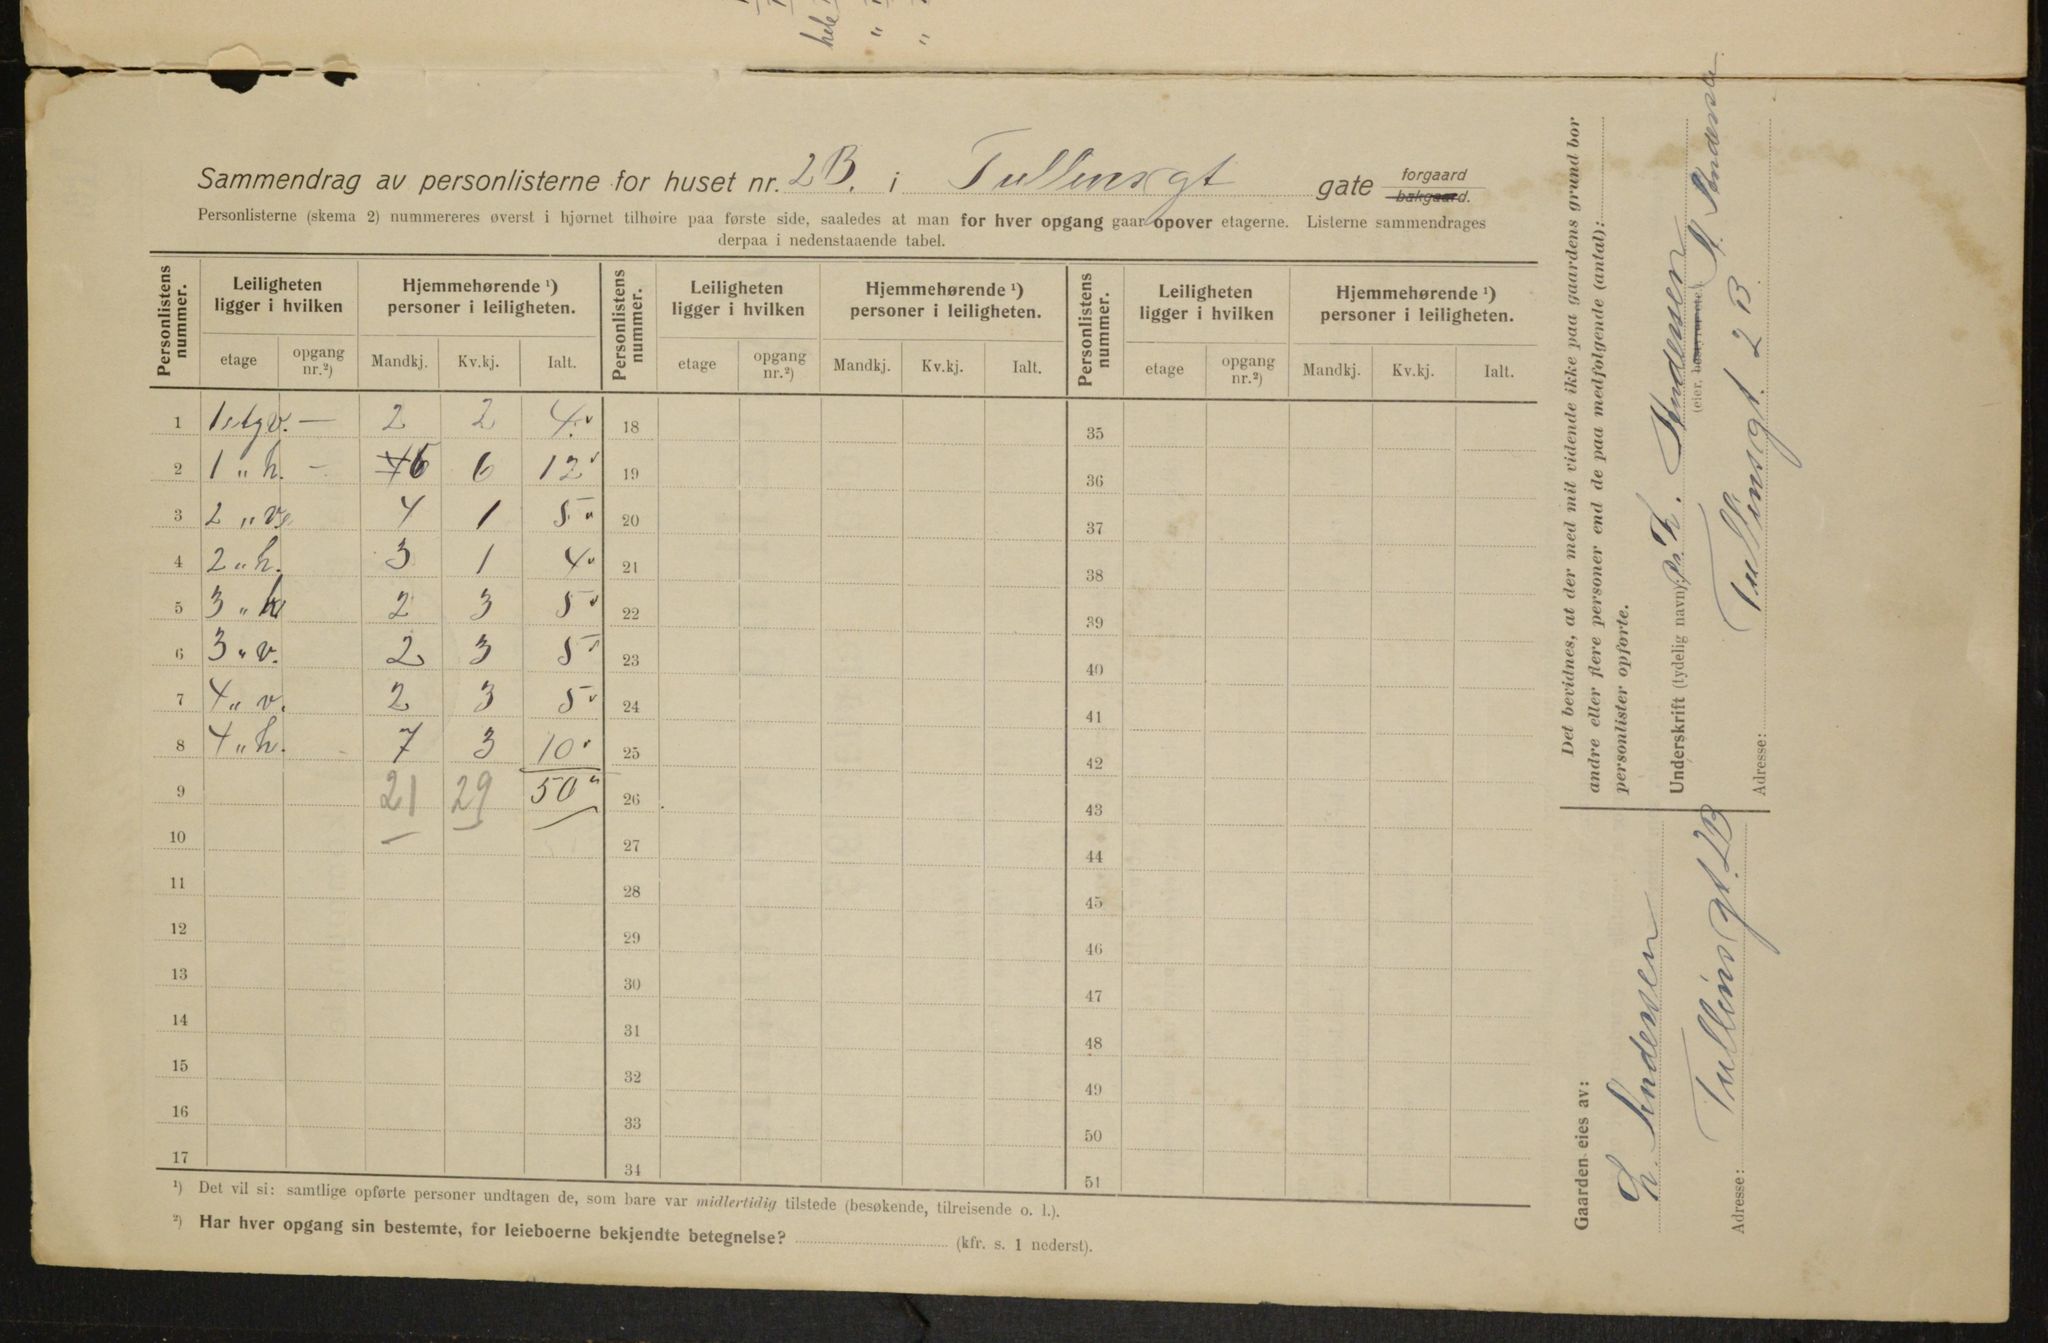 hele
" "
Sammendrag av personlisterne for huset nr. 2B. i Tullinsgt gate forgaard bakgaard.
Personlisterne (skema 2) nummereres øverst i hjørnet tilhøire paa første side, saaledes at man for hver opgang gaar opover etagerne. Listerne sammendrages
derpaa i nedenstaaende tabel.
Personlistens nummer. Leiligheten ligger i hvilken Hjemmehørende ¹) personer i leiligheten. Personlistens nummer. Leiligheten ligger i hvilken Hjemmehørende ¹) personer i leiligheten. Personlistens nummer. Leiligheten ligger i hvilken Hjemmehørende ¹) personer i leiligheten.
etage opgang nr.²) Mandkj. Kv.kj. Ialt. etage opgang nr.²) Mandkj. Kv.kj. Ialt. etage opgang nr.²) Mandkj. Kv.kj. Ialt.
1 1 etg v. — 2 2 4 18 35
2 1 " h. — 6 6 12 19 36
3 2 " v 4 1 5 20 37
4 2 " h. 3 1 4 21 38
5 3 " h 2 3 5 22 39
6 3 " v. 2 3 5 23 40
7 4 " v. 2 3 5 24 41
8 4 " h. 7 3 10 25 42
9 21 29 50 26 43
10 27 44
11 28 45
12 29 46
13 30 47
14 31 48
15 32 49
16 33 50
17 34 51
¹) Det vil si: samtlige opførte personer undtagen de, som bare var midlertidig tilstede (besøkende, tilreisende o. l.).
²) Har hver opgang sin bestemte, for leieboerne bekjendte betegnelse? (kfr. s. 1 nederst).
Det bevidnes, at der med mit vidende ikke paa gaardens grund bor
andre eller flere personer end de paa medfølgende (antal):
personlister opførte.
Underskrift (tydelig navn) Th. Andersen
(eier, bestyrer etc.)
Adresse: Tullinsgt. 2 B.
Gaarden eies av:
Th. Andersen
Adresse: Tullinsgt. 2B